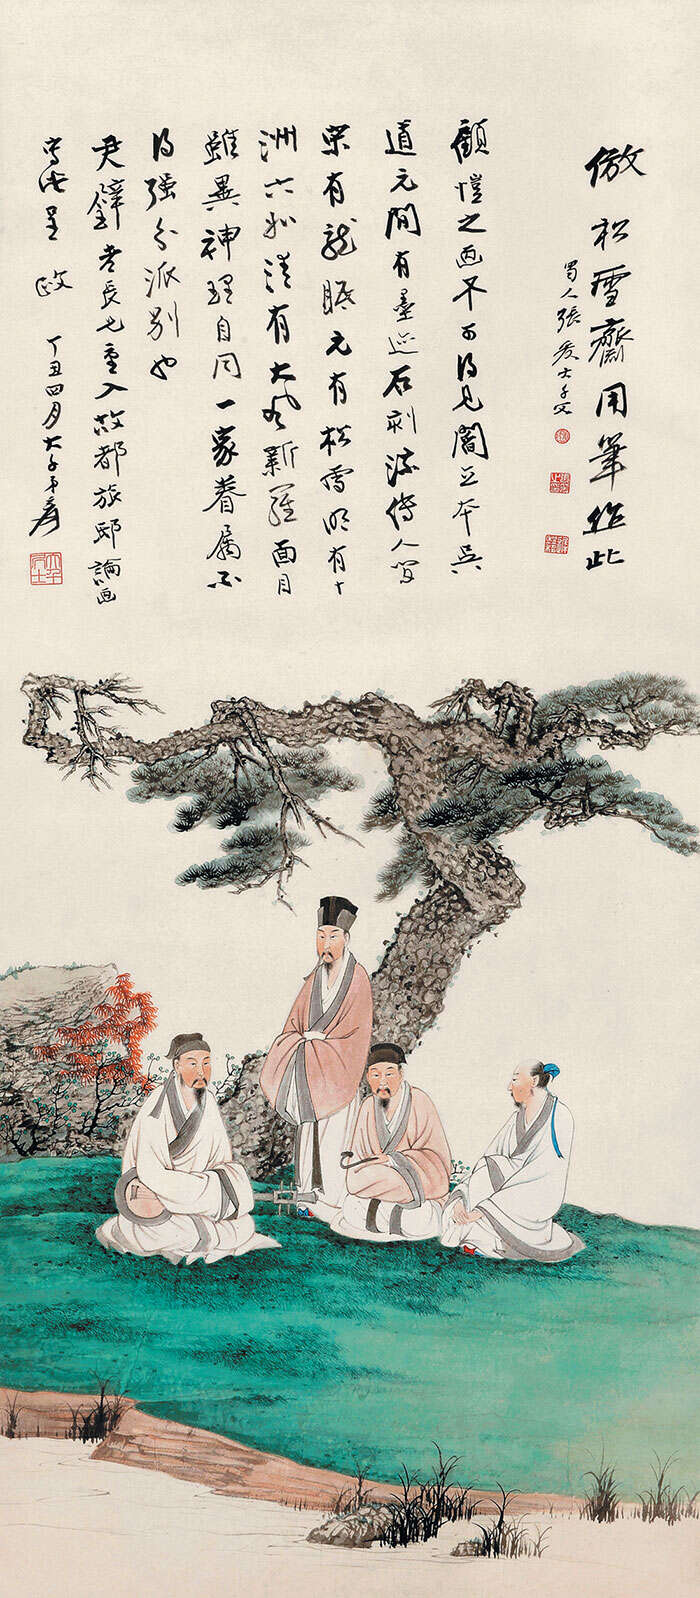 倣松雪齋用筆作此
蜀人張爰大千父
顧愷之画不可得見閻立本吳
道元間有墨迹石刻流傳人間
宋有龍眠元有松雪明有十
洲六如清有大滌新羅面目
雖異神理自同一家眷屬不
得強分派別也
老長兄重入故都旅邸論画
寫此呈政 丁丑四月大千弟爰